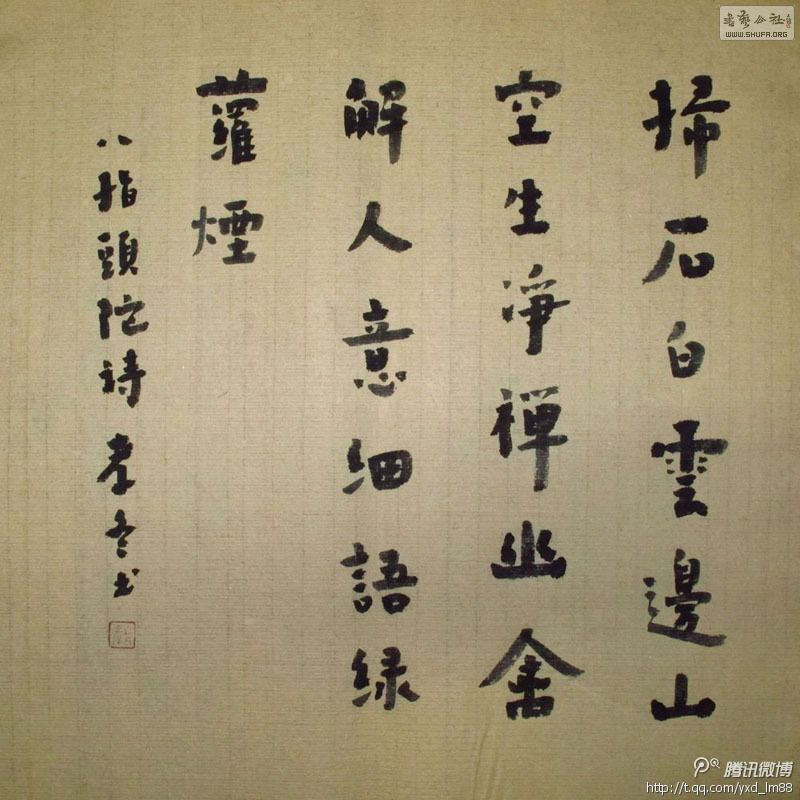 掃石白雲邊山
空生淨禪幽禽
解人意細語绿
蘿煙
八指頭陀詩 孝冬书
書藝公社
WWW.SHUFA.ORG
腾讯微博
http://t.qq.com/yxd_lm88